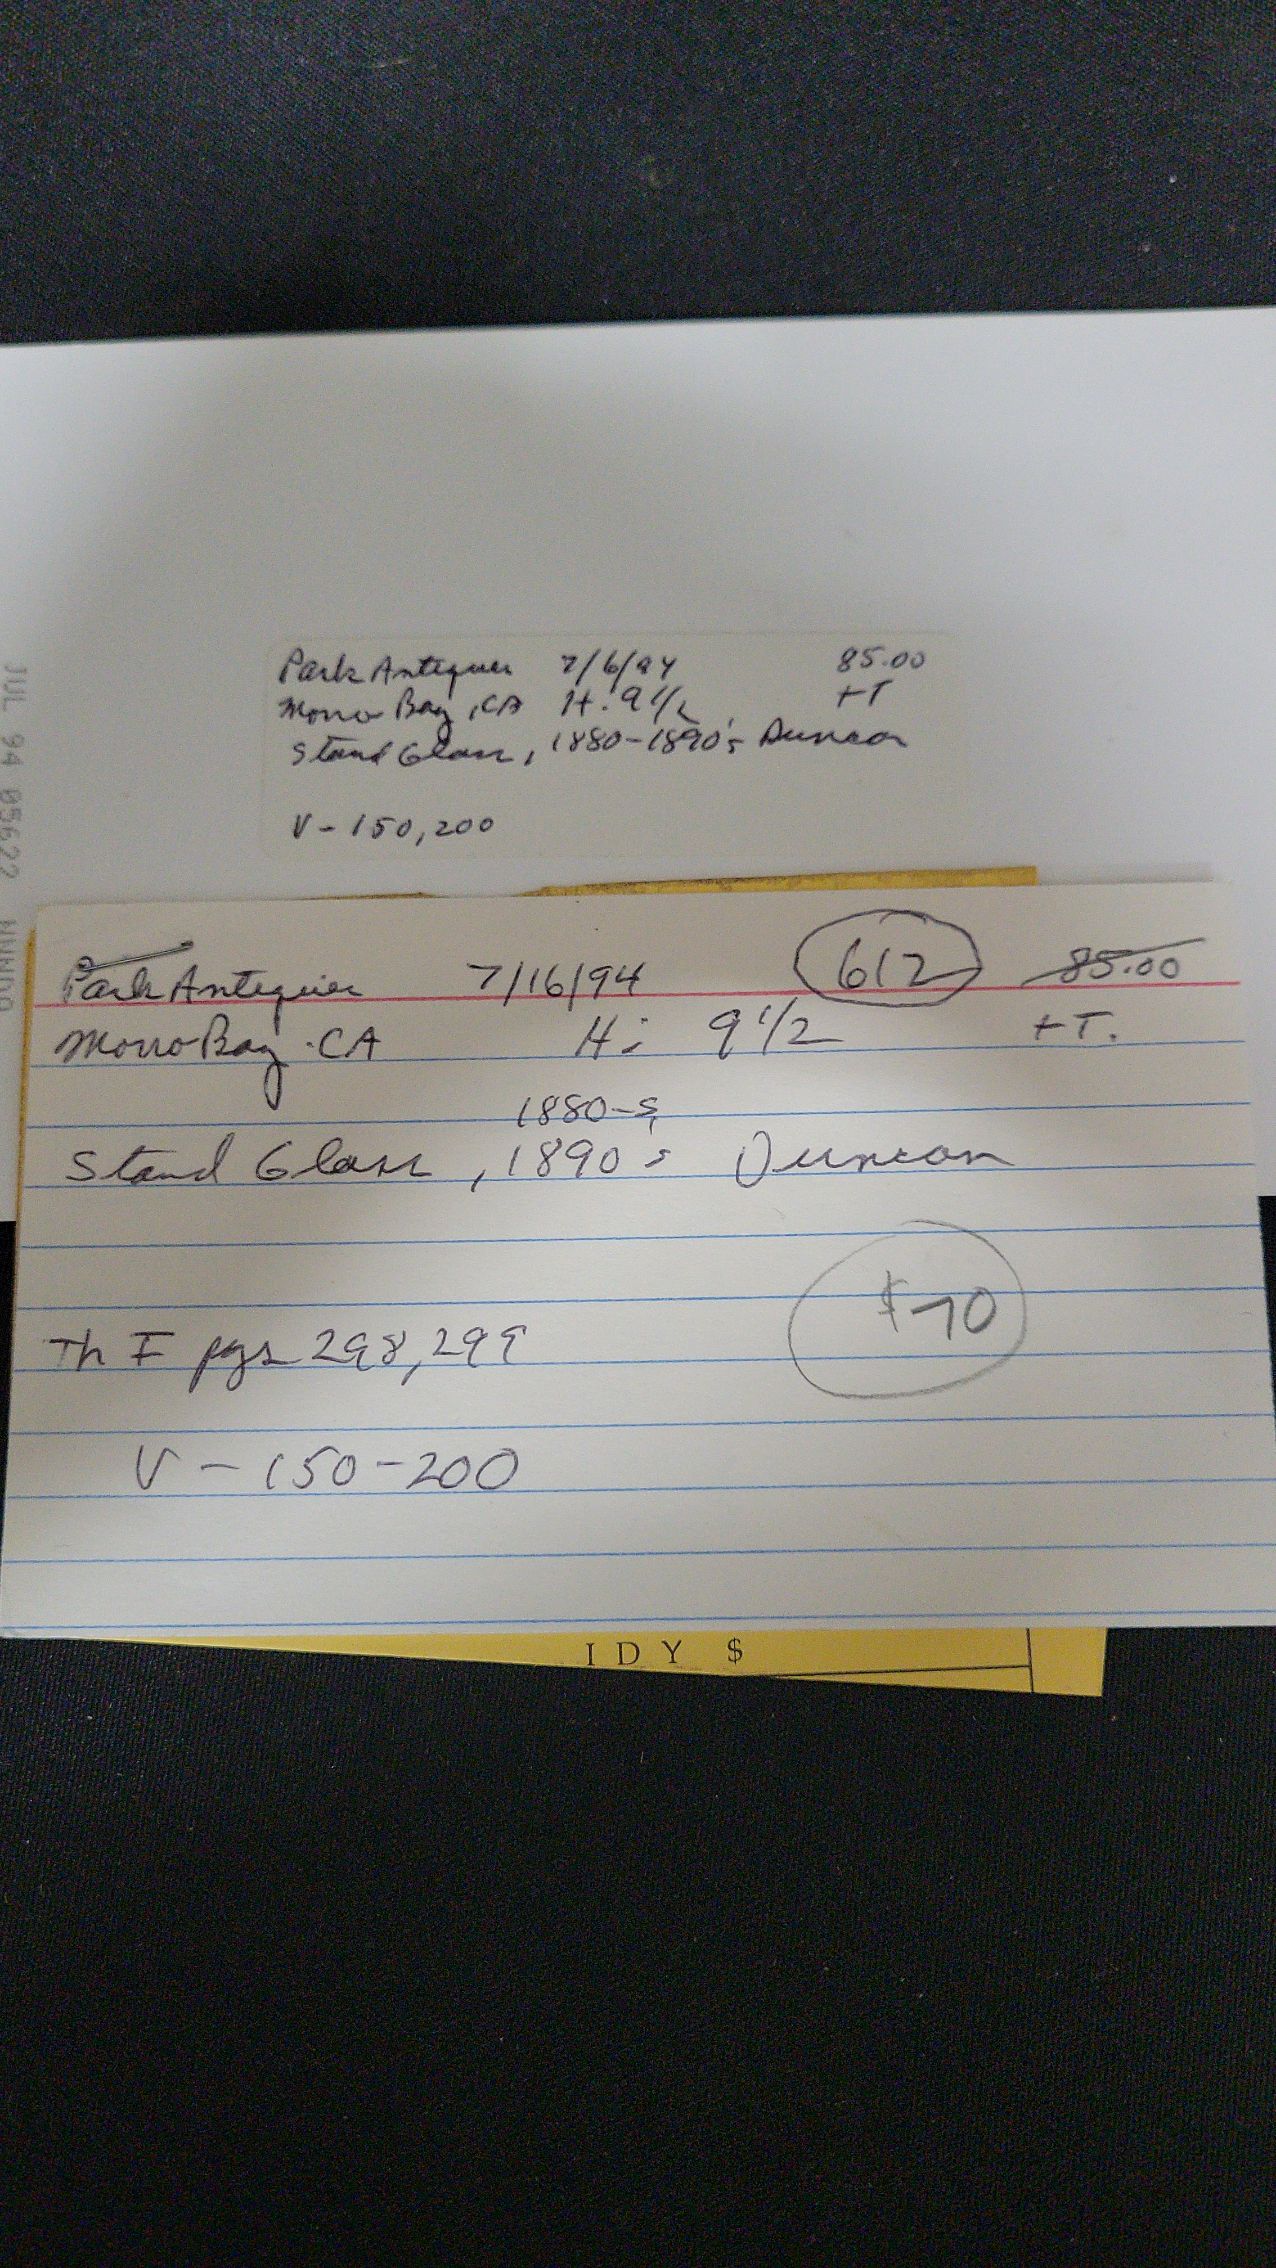 Park Antiques 7/6/94 85.00
Morro Bay, CA H. 9 1/2 +T
Stand Glass, 1880-1890's Duncan
V - 150,200
JUL 94 05622
Park Antiques 7/16/94 612 85.00
Morro Bay. CA H: 9 1/2 +T.
1880-s
Stand Glass, 1890s Duncan
$70
Th I pgs 298,299
V - 150-200
IDY $